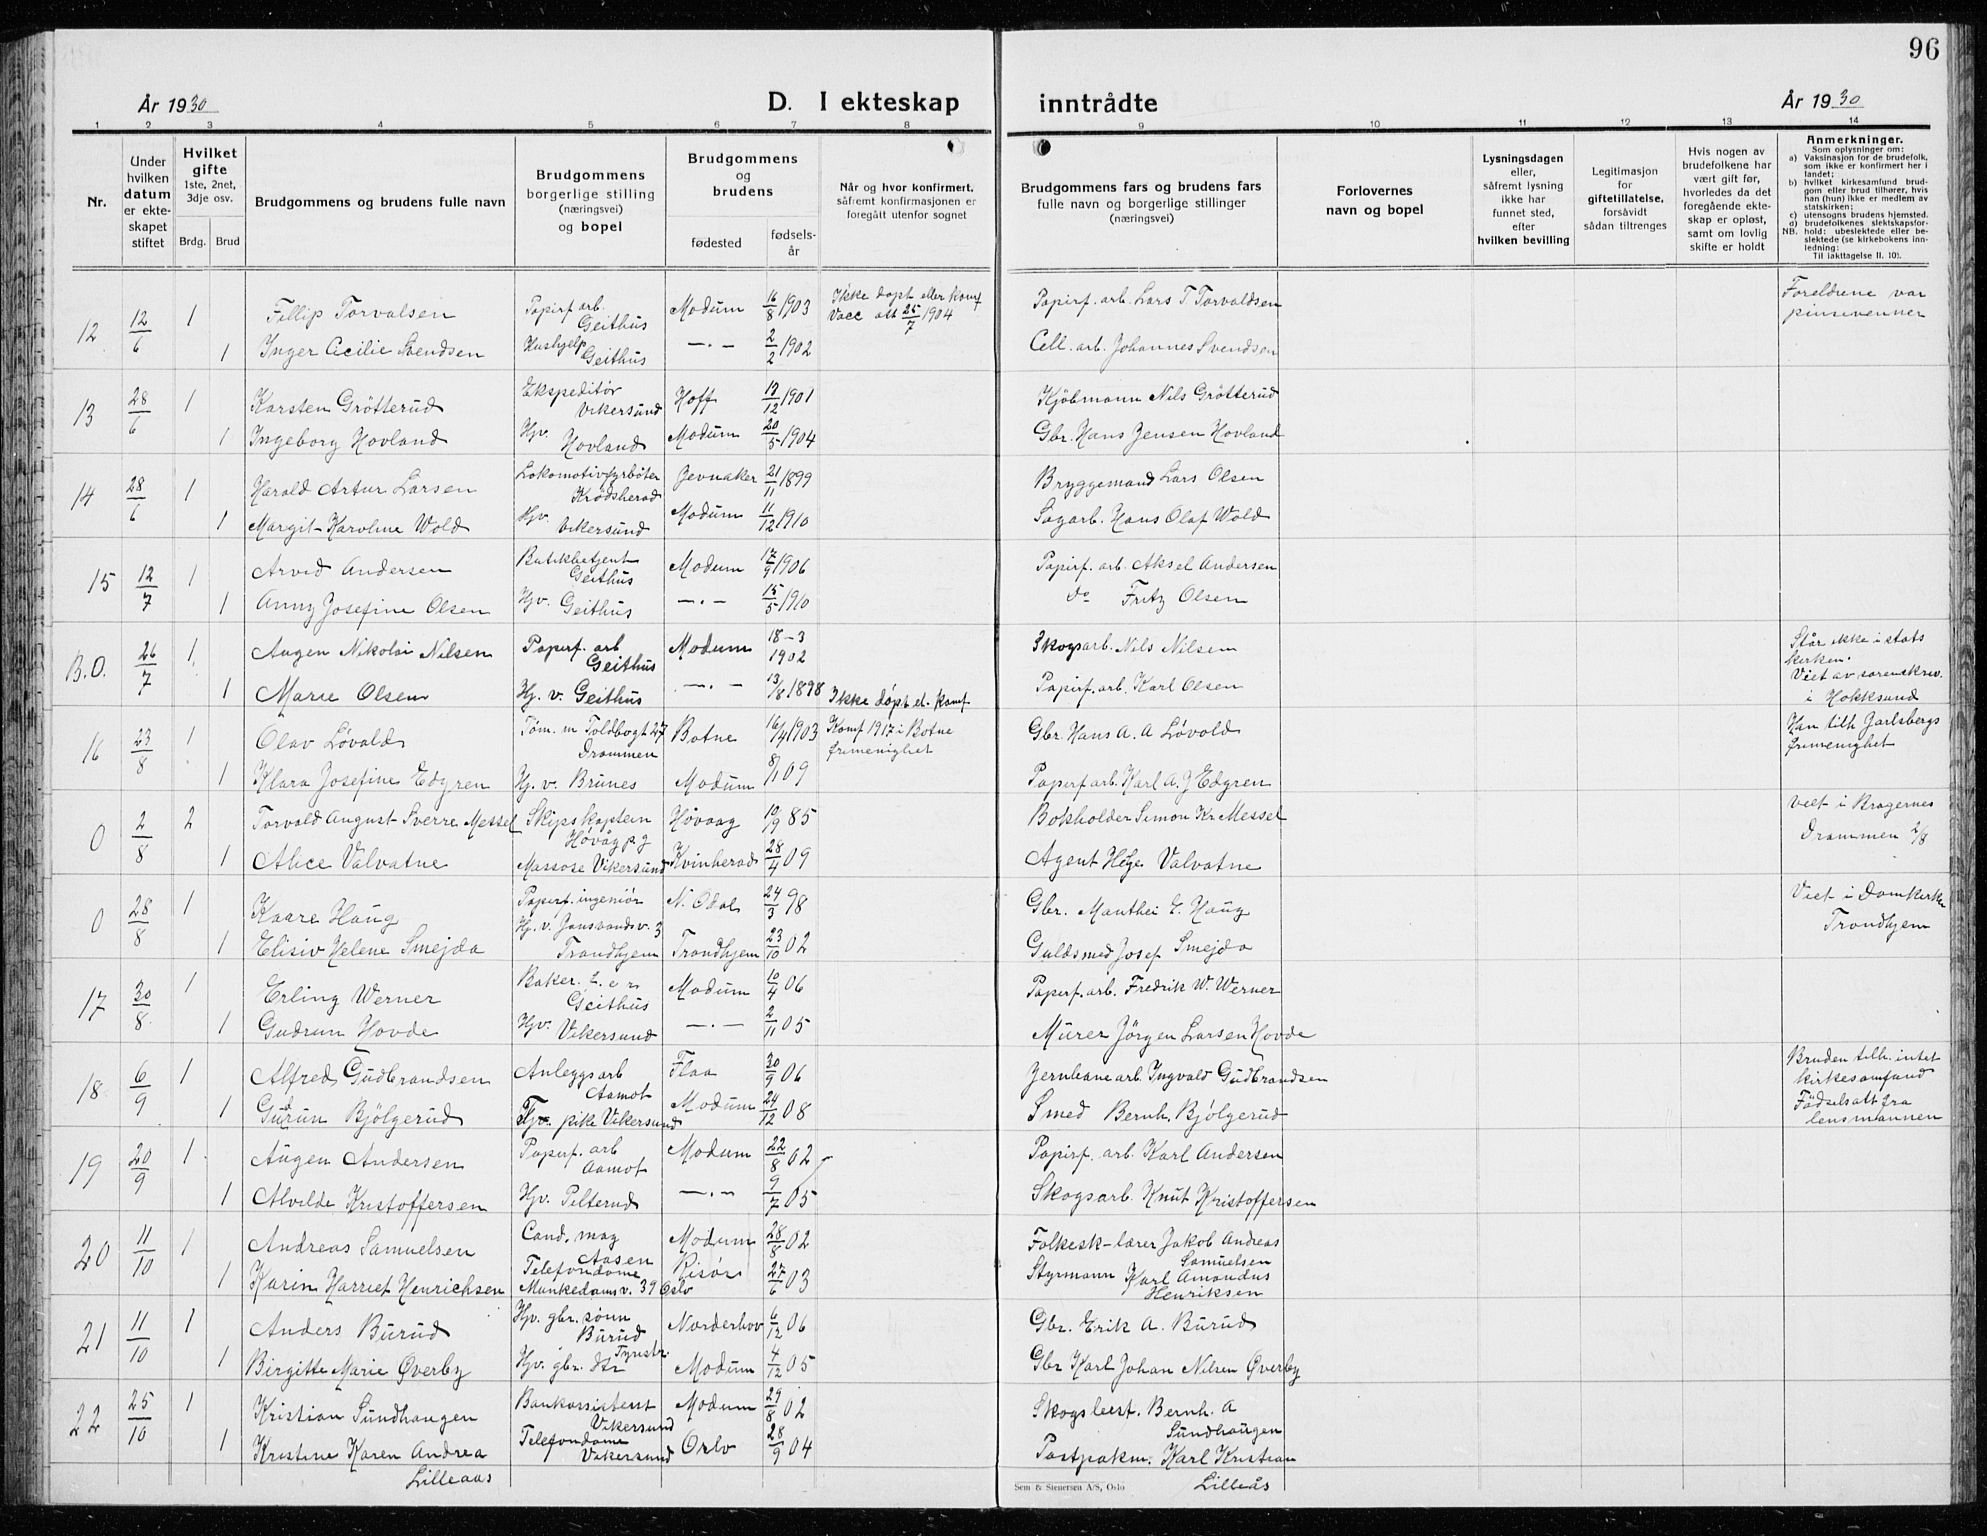 96
År 1930
D. I ekteskap inntrådte
År 1930
1 2 3 4 5 6 7 8 9 10 11 12 13 14
Nr.
Under hvilken datum er ekteskapet stiftet
Hvilket gifte
1ste, 2net, 3dje osv.
Brdg. Brud
Brudgommens og brudens fulle navn
Brudgommens borgerlige stilling (næringsvei) og bopel
Brudgommens og brudens
fødested
fødsels-år
Når og hvor konfirmert, såfremt konfirmasjonen er foregått utenfor sognet
Brudgommens fars og brudens fars fulle navn og borgerlige stillinger (næringsvei)
Forlovernes navn og bopel
Lysningsdagen eller, såfremt lysning ikke har funnet sted, efter hvilken bevilling
Legitimasjon for giftetillatelse, forsåvidt sådan tiltrenges
Hvis nogen av brudefolkene har vært gift før, hvorledes da det foregående ekteskap er opløst, samt om lovlig skifte er holdt
Anmerkninger.
Som oplysninger om:
a) Vaksinasjon for de brudefolk, som ikke er konfirmert her i landet;
b) hvilket kirkesamfund brudgom eller brud tilhører, hvis han (hun) ikke er medlem av statskirken;
c) utensogns brudens hjemsted.
d) brudefolkenes slektskapsforhold: ubeslektede eller beslektede (se kirkebokens innledning:
NB.
Til iakttagelse II. 10).
12 12/6 1 Fillip Torvalsen Papirf. arb. Geithus Modum 16/8 1903 Ikke døpt eller konf Vacc att 25/7 1904 Papirf. arb. Lars T Torvaldsen Foreldrene var pinsevenner
1 Inger Cecilie Svendsen Hushjelp Geithus —„— 2/2 1902 Cell. arb. Johannes Svendsen
13 28/6 1 Karsten Grötterud Ekspeditör Vikersund Hoff 13/12 1901 Kjöbmann Nils Grötterud
1 Ingeborg Hovland Hjv. Hovland Modum 20/5 1904 Gbr. Hans Jensen Hovland
14 28/6 1 Harald Artur Larsen Lokomotivfyrbøter Krødsherad Jevnaker 21/11 1899 Bryggemand Lars Olsen
1 Margit Karoline Wold Hjv. Vikersund Modum 11/12 1910 Sagarb. Hans Olaf Wold
15 12/7 1 Arvid Andersen Butikbetjent Geithus Modum 17/9 1906 Papirf. arb. Aksel Andersen
1 Anny Josefine Olsen Hjv. Geithus —„— 15/5 1910 do Fritz Olsen
B.O. 26/7 1 Augen Nikolai Nilsen Papirf. arb Geithus Modum 18-3 1902 Skogsarb. Nils Nilsen Står ikke i stats kirken. Viet av sorenskriv. i Hokksund
1 Marie Olsen Hj. v. Geithus —„— 13/8 1898 Ikke döpt el. konf Papirf. arb. Karl Olsen
16 23/8 1 Olav Lövald Töm. m Toldbogt 27 Drammen Botne 16/4 1903 Konf 1917 i Botne frimenighet Gbr. Hans A. A Lövold Han tilh Jarlsbergs frimenighet
1 Klara Josefine Edgren Hj. v. Brunes Modum 8/1 09 Papirf arb. Karl A. J Edgren
0 2/8 2 Torvald August Sverre Messel Skipskaptein Hövåg pg Hövaag 10/9 85 Bokholder Simon Kr Messel viet i Bragernes Drammen 2/8
1 Alice Valvatne Massøse Vikersund Kvinherad 28/4 09 Agent Helge Valvatne
0 28/8 1 Kaare Haug Papirf. ingeniør N. Odal 24/3 98 Gbr. Manthei E. Haug Viet i Domkirke Trondhjem
1 Elisiv Helene Smejda Hj. v. Jonsvandsv. 3 Trondhjem Trondhjem 23/10 02 Guldsmed Josef Smejda
17 30/8 1 Erling Werner Baker Geithus Modum 10/4 06 Papirf. arb. Fredrik W. Werner
1 Gudrun Hovde Hjv. Vikersund —„— 2/11 05 Murer Jörgen Larsen Hovde
18 6/9 1 Alfred Gudbrandsen Anleggsarb Aamot Flaa 30/9 06 Jernbanearb. Ingvald Gudbrandsen Bruden tilh. intet kirkesamfund Födselsatt fra lensmannen
1 Gudrun Bjölgerud Tjv. pike Vikersund Modum 24/12 08 Smed Bernh. Bjölgerud
19 20/9 1 Augen Andersen Papirf. arb Aamot Modum 22/8 02 Papirf. arb. Karl Andersen
1 Alvilde Kristoffersen Hjv. Pelterud —„— 9/7 05 Skogsarb. Knut Kristoffersen
20 11/10 1 Andreas Samuelsen Cand. mag Aasen Modum 28/8 02 Folkesk-lærer Jakob Andreas Samuelsen
1 Karin Harriet Henrichsen Telefondame Munkedamsv. 39 Oslo Risör 27/6 03 Styrmann Karl Amandus Henriksen
21 11/10 1 Anders Burud Hjv. gbr. sönn Burud Norderhov 6/12 06 Gbr. Erik A. Burud
1 Birgitte Marie Øverby Hjv. gbr. dtr Tyristr. Modum 4/12 05 Gbr Karl Johan Nilsen Øverby
22 25/10 1 Kristian Sundhaugen Bankassistent Vikersund Modum 29/8 02 Skogsbest. Bernh. A Sundhaugen
1 Kristine Karen Andrea Lilleaas Telefondame Vikersund Oslo 28/9 04 Postpakm. Karl Kristian Lilleås
Sem & Stenersen A/S, Oslo